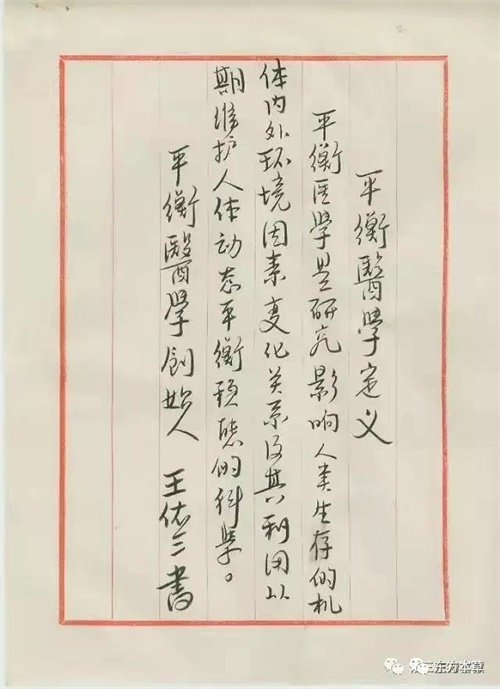 平衡醫學定义
平衡医學是研究影响人类生存的机
体内外环境因素变化关系及其利用以
期维护人体动态平衡態的科學。
平衡醫學創始人 王佑三書